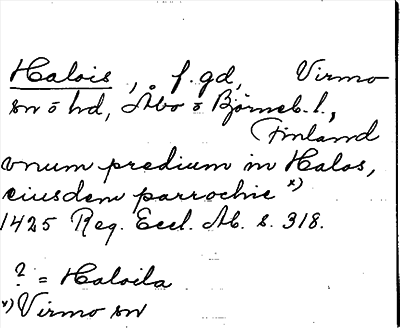 Halois, f.gd, Virmo
sn o hd, Åbo o Björneb. l.,
Finland
vnum predium in Halos,
eiusdem parrochie x)
1425 Reg. Eccl. Ab. s. 318.
? = Haloila
x) Virmo sn